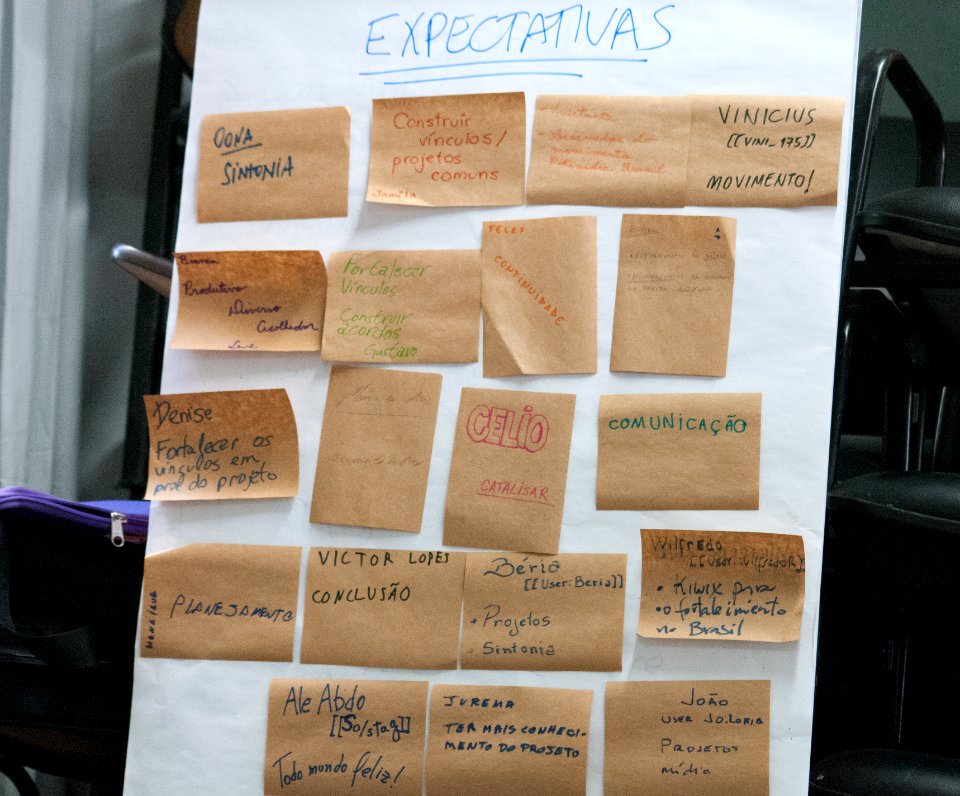 EXPECTATIVAS
OONA
SINTONIA
Construir
vínculos/
projetos
comuns
Jamila
- observador do
movimento
Wikimedia Brasil
VINICIUS
[[VINI_175]]
MOVIMENTO!
Produtivo
Diverso
Acolhedor
Leve
Fortalecer
Vínculos
Construir
acordos
Gustavo
TELES
CONTINUIDADE
Denise
Fortalecer os
vínculos em
prol do projeto
CELIO
CATALISAR
COMUNICAÇÃO
HENRIQUE
PLANEJAMENTO
VICTOR LOPES
CONCLUSÃO
Béria
[[User:Beria]]
• Projetos
• Sintonia
Wilfredo
[[User:WilfredoR]]
• Kiwix para
• o fortaleimiento
no Brasil
Ale Abdo
[[So/stag]]
Todo mundo feliz!
JUREMA
TER MAIS CONHECI-
MENTO DO PROJETO
JOÃO
USER JO.LORIA
PROJETOS
mídia